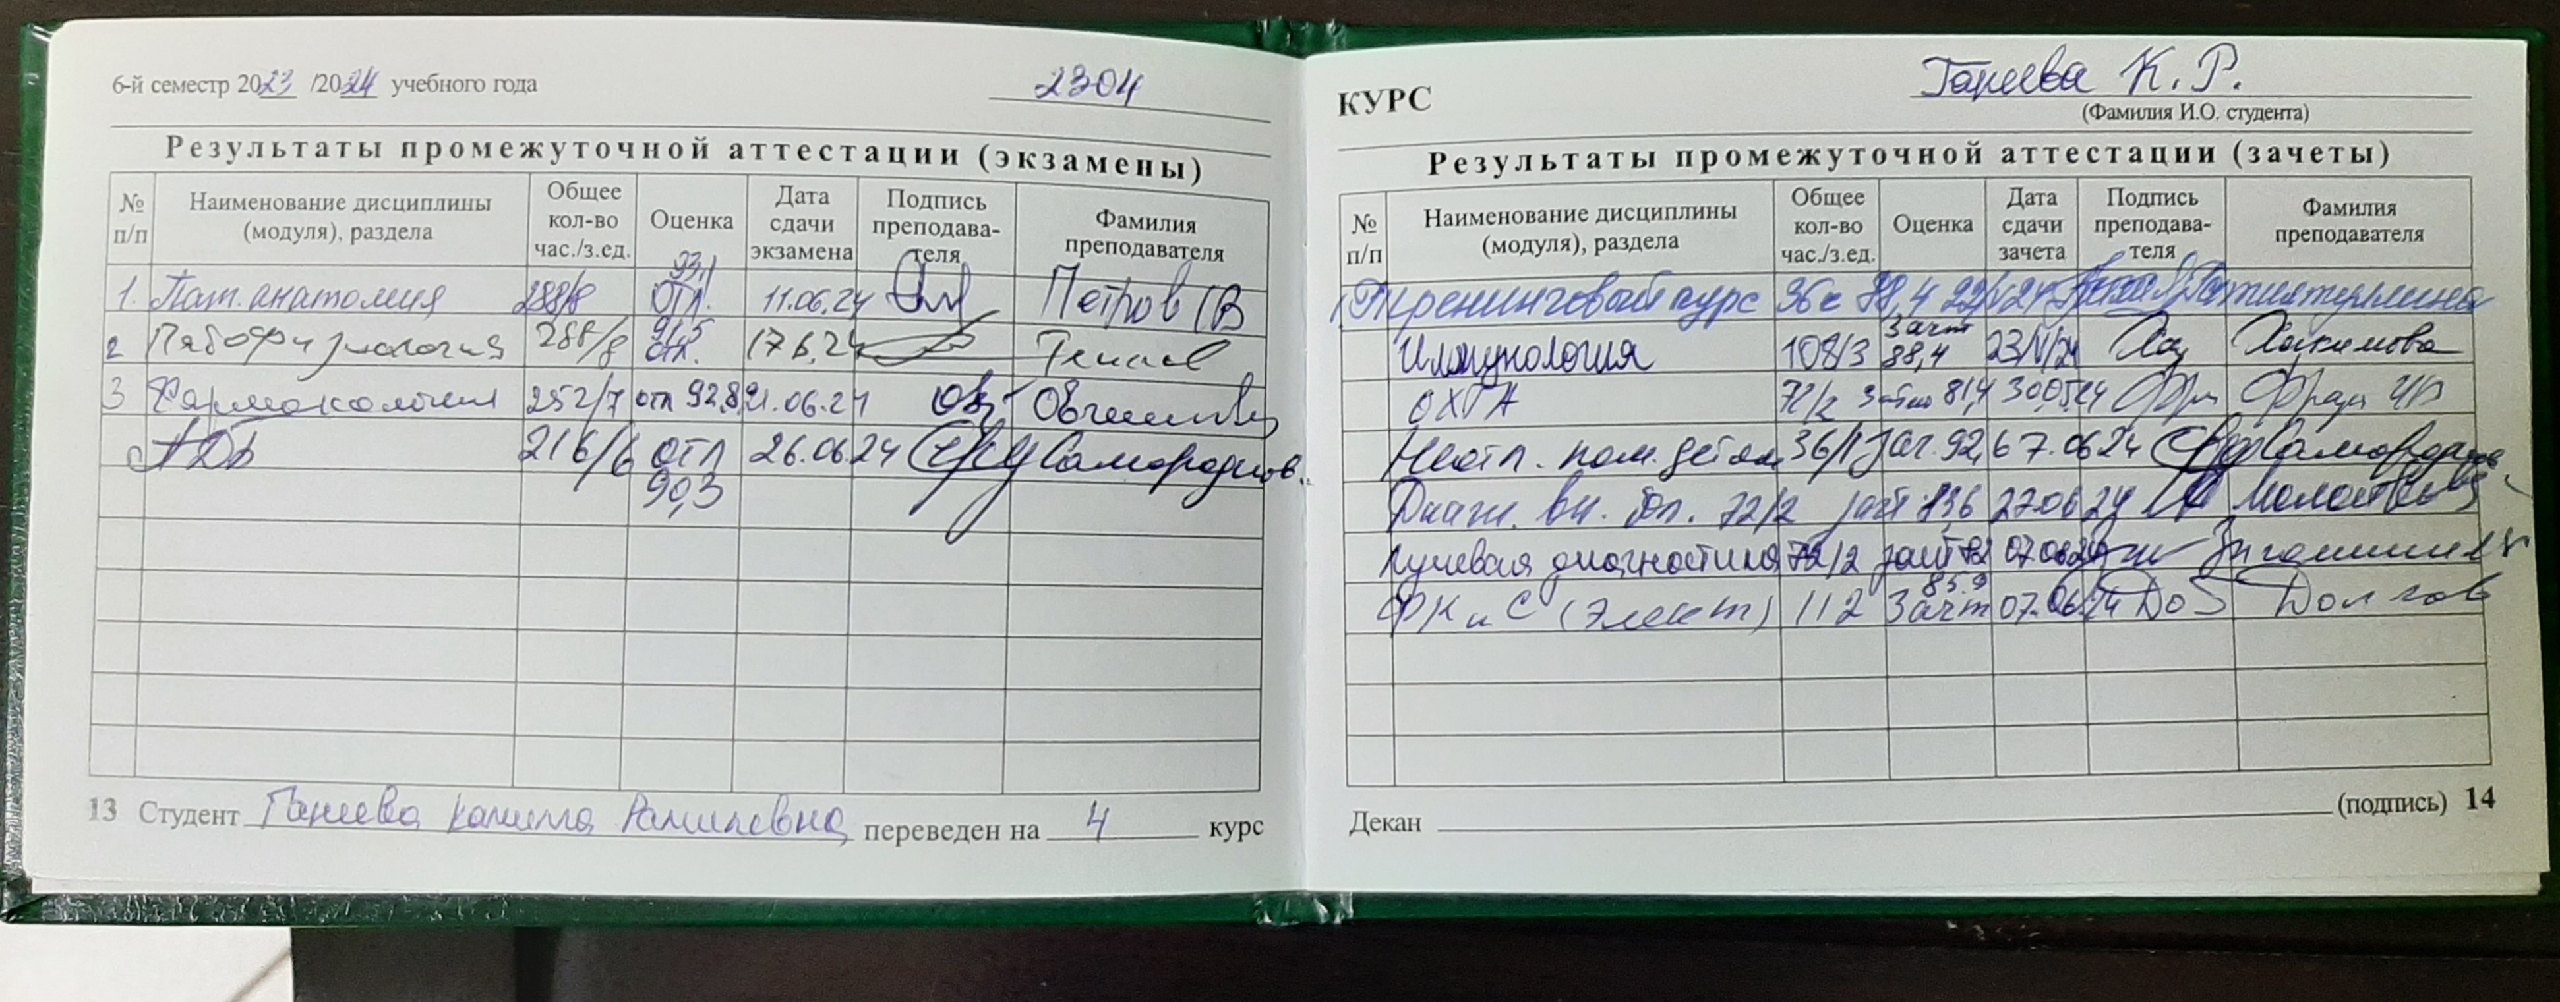 6-й семестр 2023 /2024 учебного года 2304
Результаты промежуточной аттестации (экзамены)
№ п/п Наименование дисциплины (модуля), раздела Общее кол-во час./з.ед. Оценка Дата сдачи экзамена Подпись преподавателя Фамилия преподавателя
1. Пат. анатомия 288/8 отл. 93,1 11.06.24 Петров СВ
2 Патофизиология 288/8 91,5 отл. 17.6.24
3 Фармакология 252/7 отл 92,8 21.06.24
ПДБ 216/6 отл 90,3 26.06.24 Самороднов
13 Студент Ганеева Камилла Рамилевна переведен на 4 курс
КУРС Ганеева К. Р.
(Фамилия И.О. студента)
Результаты промежуточной аттестации (зачеты)
№ п/п Наименование дисциплины (модуля), раздела Общее кол-во час./з.ед. Оценка Дата сдачи зачета Подпись преподавателя Фамилия преподавателя
1 Тренинговый курс 36
Иммунология 108/3 зачт 88,4 23/V/24 Хакимова
ОХТА 72/2 81,4 30.05.24
Неотл. пом. детям 36/1 зач. 92,6 7.06 24
Диагн. вн. бол. 72/2 зачт 27.06 24
Лучевая диагностика 72/2 зачт 07.06.24
ФК и С (Элект) 112 85.9 Зачт 07.06.24 Долгов
Декан (подпись) 14